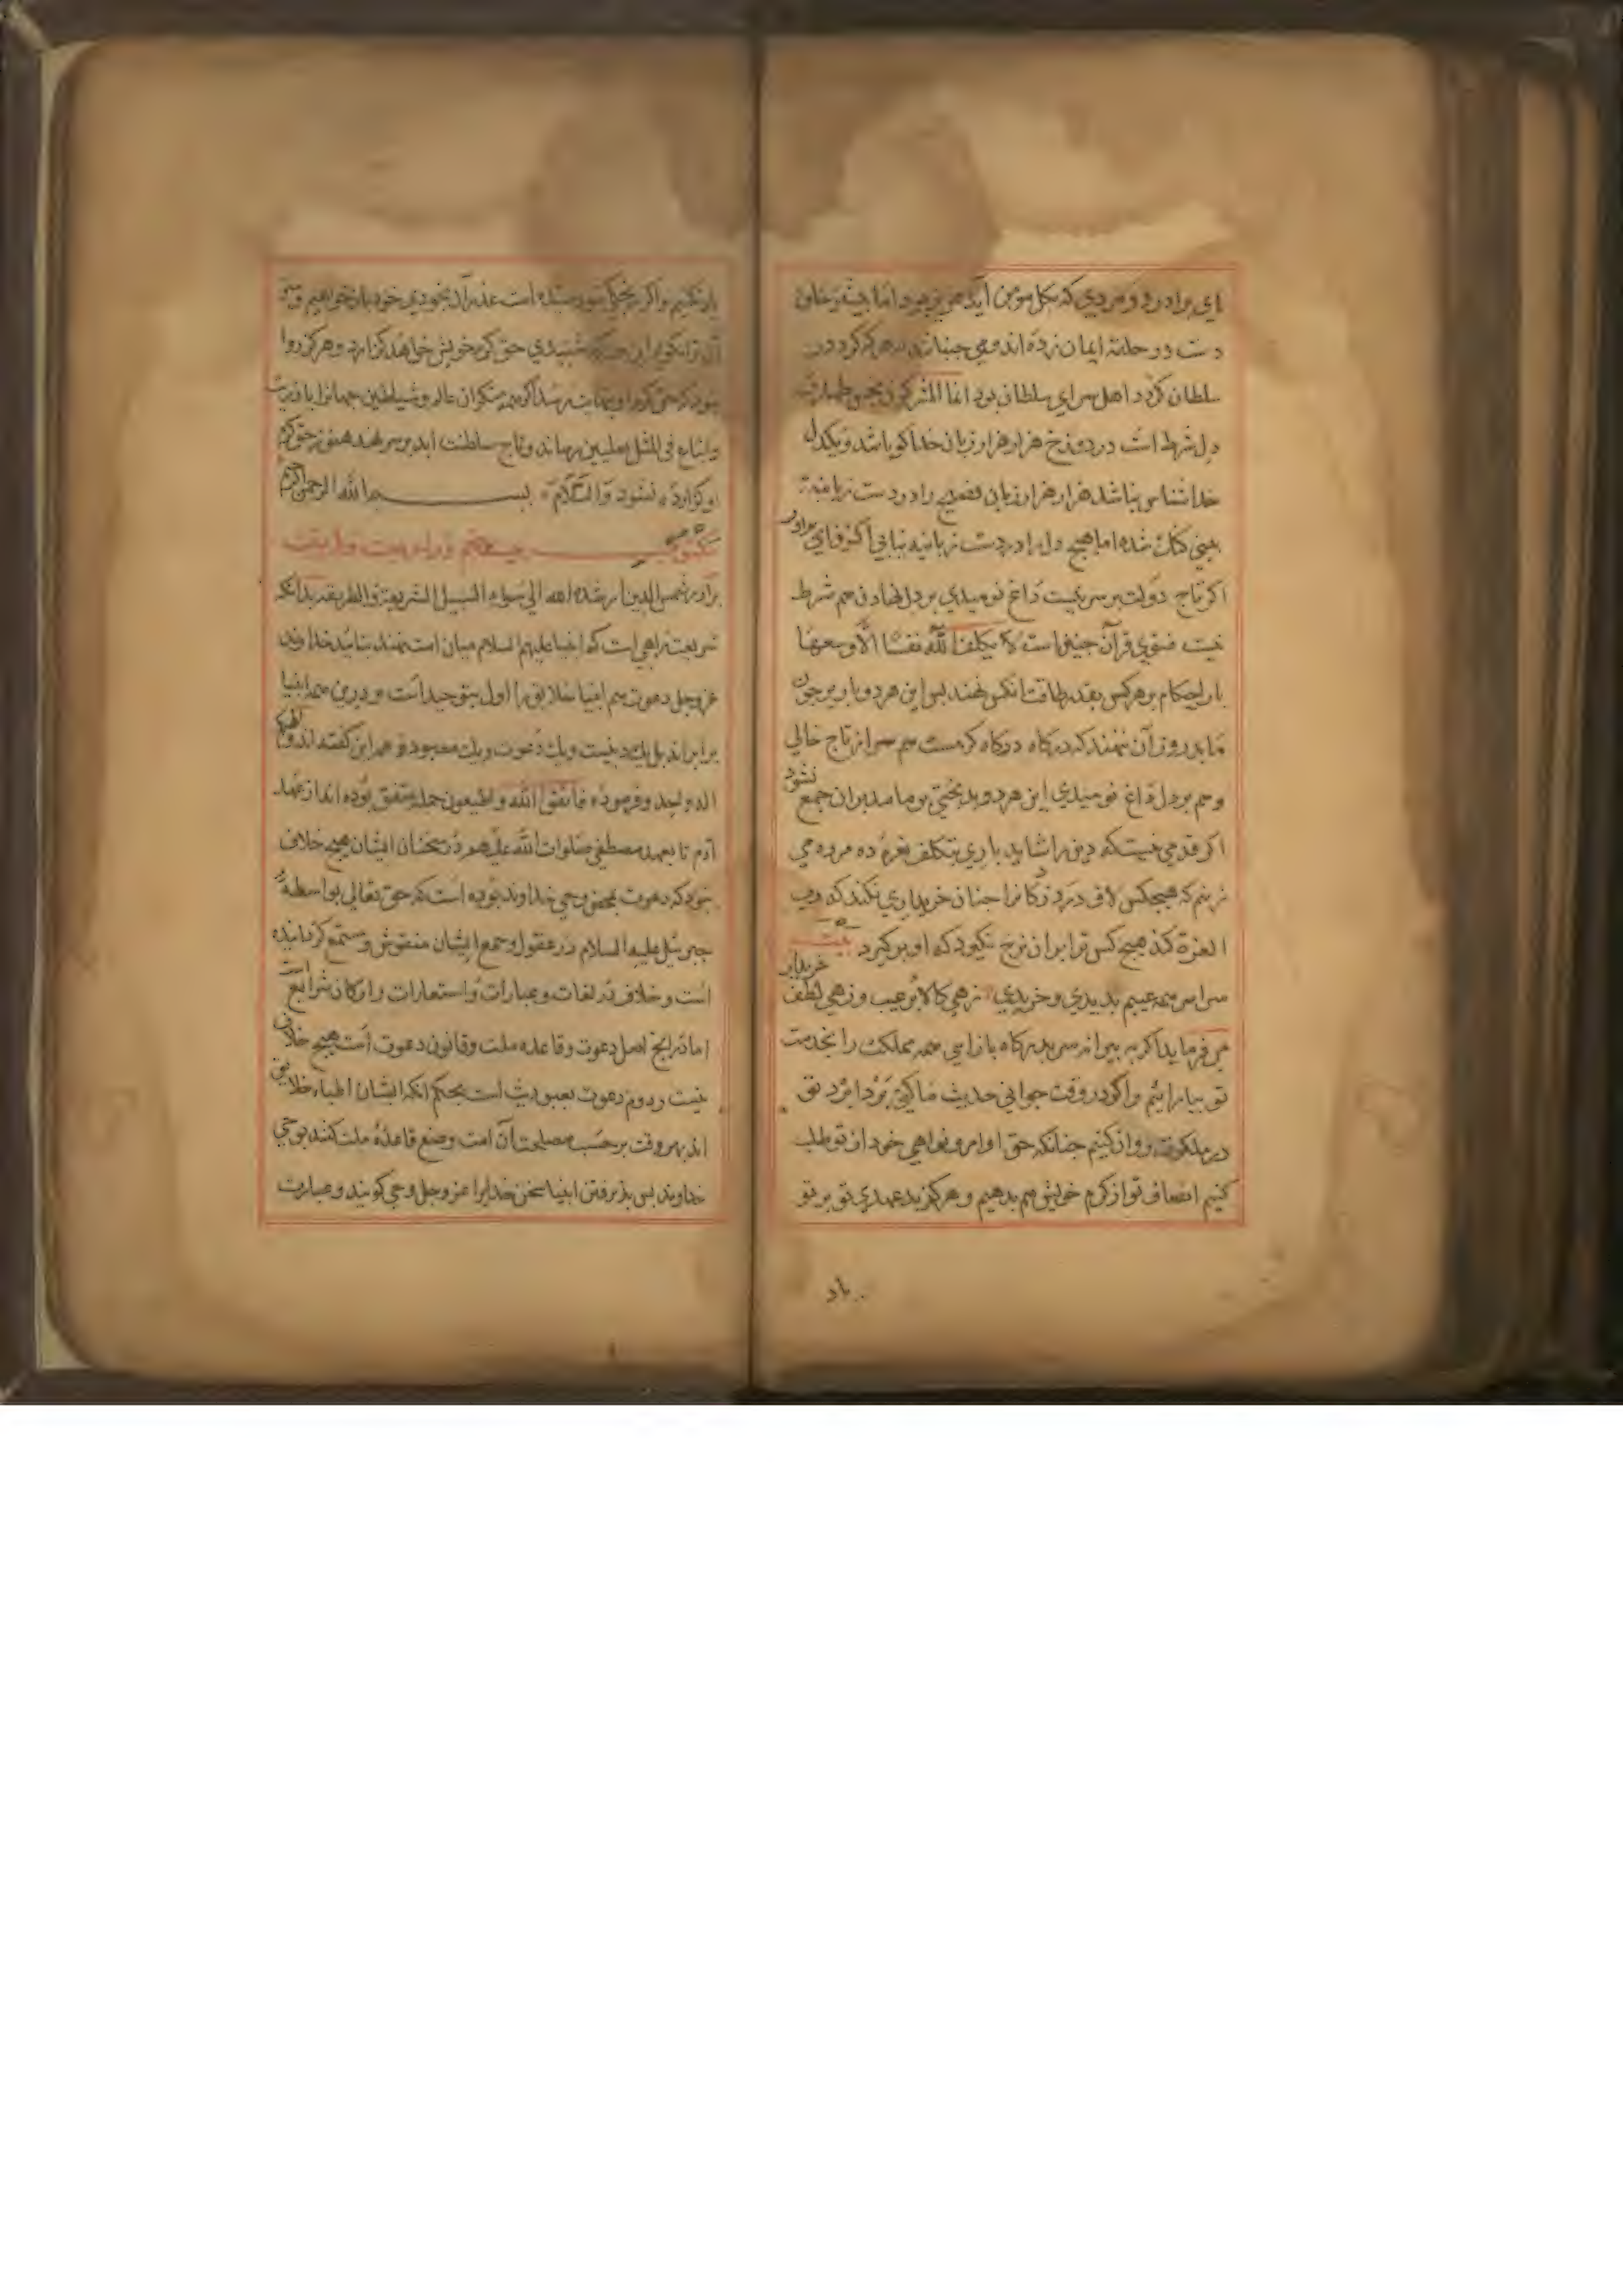 ای برادر درد و مردی که بکل مومن آید هم بود اما
دست در حلقه ایمان زده اند می جنبانند هرکه کرد در
سلطان کردد اهل سرای سلطانی بود انما المشرکون نجس طهارت
دل شرط است در دوزخ هزار هزار زبان خداکو باشد و یکدل
خداشناس نباشد هزار هزار زبان فصیح را در دست زبانیه
بینی کنک شده اما هیچ دل را در دست زبانیه نیابی اکنون ای برادر
اکر تاج دولت بر سر نیست داغ نومیدی بر دل نهادن هم شرط
نیست فتوی قرآن چنین است لا یکلف الله نفسا الا وسعها
بار احکام بر هرکس بقدر طاقت انکس نهند پس این هر دو بار بر چون
ما بدروزان ننهند که درکاه درکاه کرمست هم سر از تاج خالی
و هم بر دل داغ نومیدی این هر دو بدبختی بر ما مدبران جمع نشود
اکر قدمی نیست که دین را شاید باری بتکلف نعره ده مرده می
زنیم که هیچکس لاف درد زدکانرا چنان خریداری نکند که رب
العزة کند هیچ کس ترا بران نرخ نکیرد که او بر کیرد بیت
سراسر همه عیبم بدیدی و خریدی زهی کالا پر عیب و زهی لطف خریدار
می فرماید اکر به پیرانه سر بدرکاه باز آیی همه مملکت را بخدمت
تو بیارائیم و اکر در وقت جوانی حدیث ما کنی فردا فرد تو
در ملکوت روان کنیم چنانکه حق اوامر و نواهی خود از تو طلب
کنیم انصاف تو از کرم خویش هم بدهیم و هرکز بدعهدی تو بر تو
باد
یاد نکنیم و اکر عذر آن بخودی خود باز خواهیم
حق کرم خویش خواهد کزارد و هرکز روا
نبود که حق کرم او بنهایت رسد اکر همه منکران عالم و شیاطین جهانرا
فی المثل بعلیین رساند و تاج سلطنت ابد بر سر نهد هنوز حق کرم
او کزارده نشود والسلام بسم الله الرحمن الرحیم
مکتوب بیست و
برادر شمس الدین ارشده الله الی سواء السبیل الشریعة و الطریقة بدانکه
شریعت راهی است که انبیا علیهم السلام میان امت نهند بتائید خداوند
عز و جل دعوت همه انبیا خلایق را اول بتوحید است و درین همه انبیا
برابراند بل یک دینیست و یک دعوت و یک معبود و همه این کفته اند و الهکم
اله واحد و فرموده فاتقوا الله و اطیعون جمله متفق بوده اند از عهد
آدم تا بعهد مصطفی صلوات الله علیهم در سخنان ایشان هیچ خلاف
نبود که دعوت بمحض وحی خداوند بوده است که حق تعالی بواسطه
جبرئیل علیه السلام در عقول و سمع ایشان منقوش و مستمع کردانیده
است و خلاف در لغات و عبارات و استعارات و ارکان شرایع است
اما در انچ اصل دعوت و قاعده ملت و قانون دعوت است هیچ خلاف
نیست و دوم دعوت بعبودیت است بحکم انکه ایشان اطباء خلایق
اند بهر وقت بر حسب مصلحت آن امت وضع قاعده ملت کنند بوحی
خداوند پس پذیرفتن انبیا سخن خدایرا عز و جل وحی کویند و عبارت